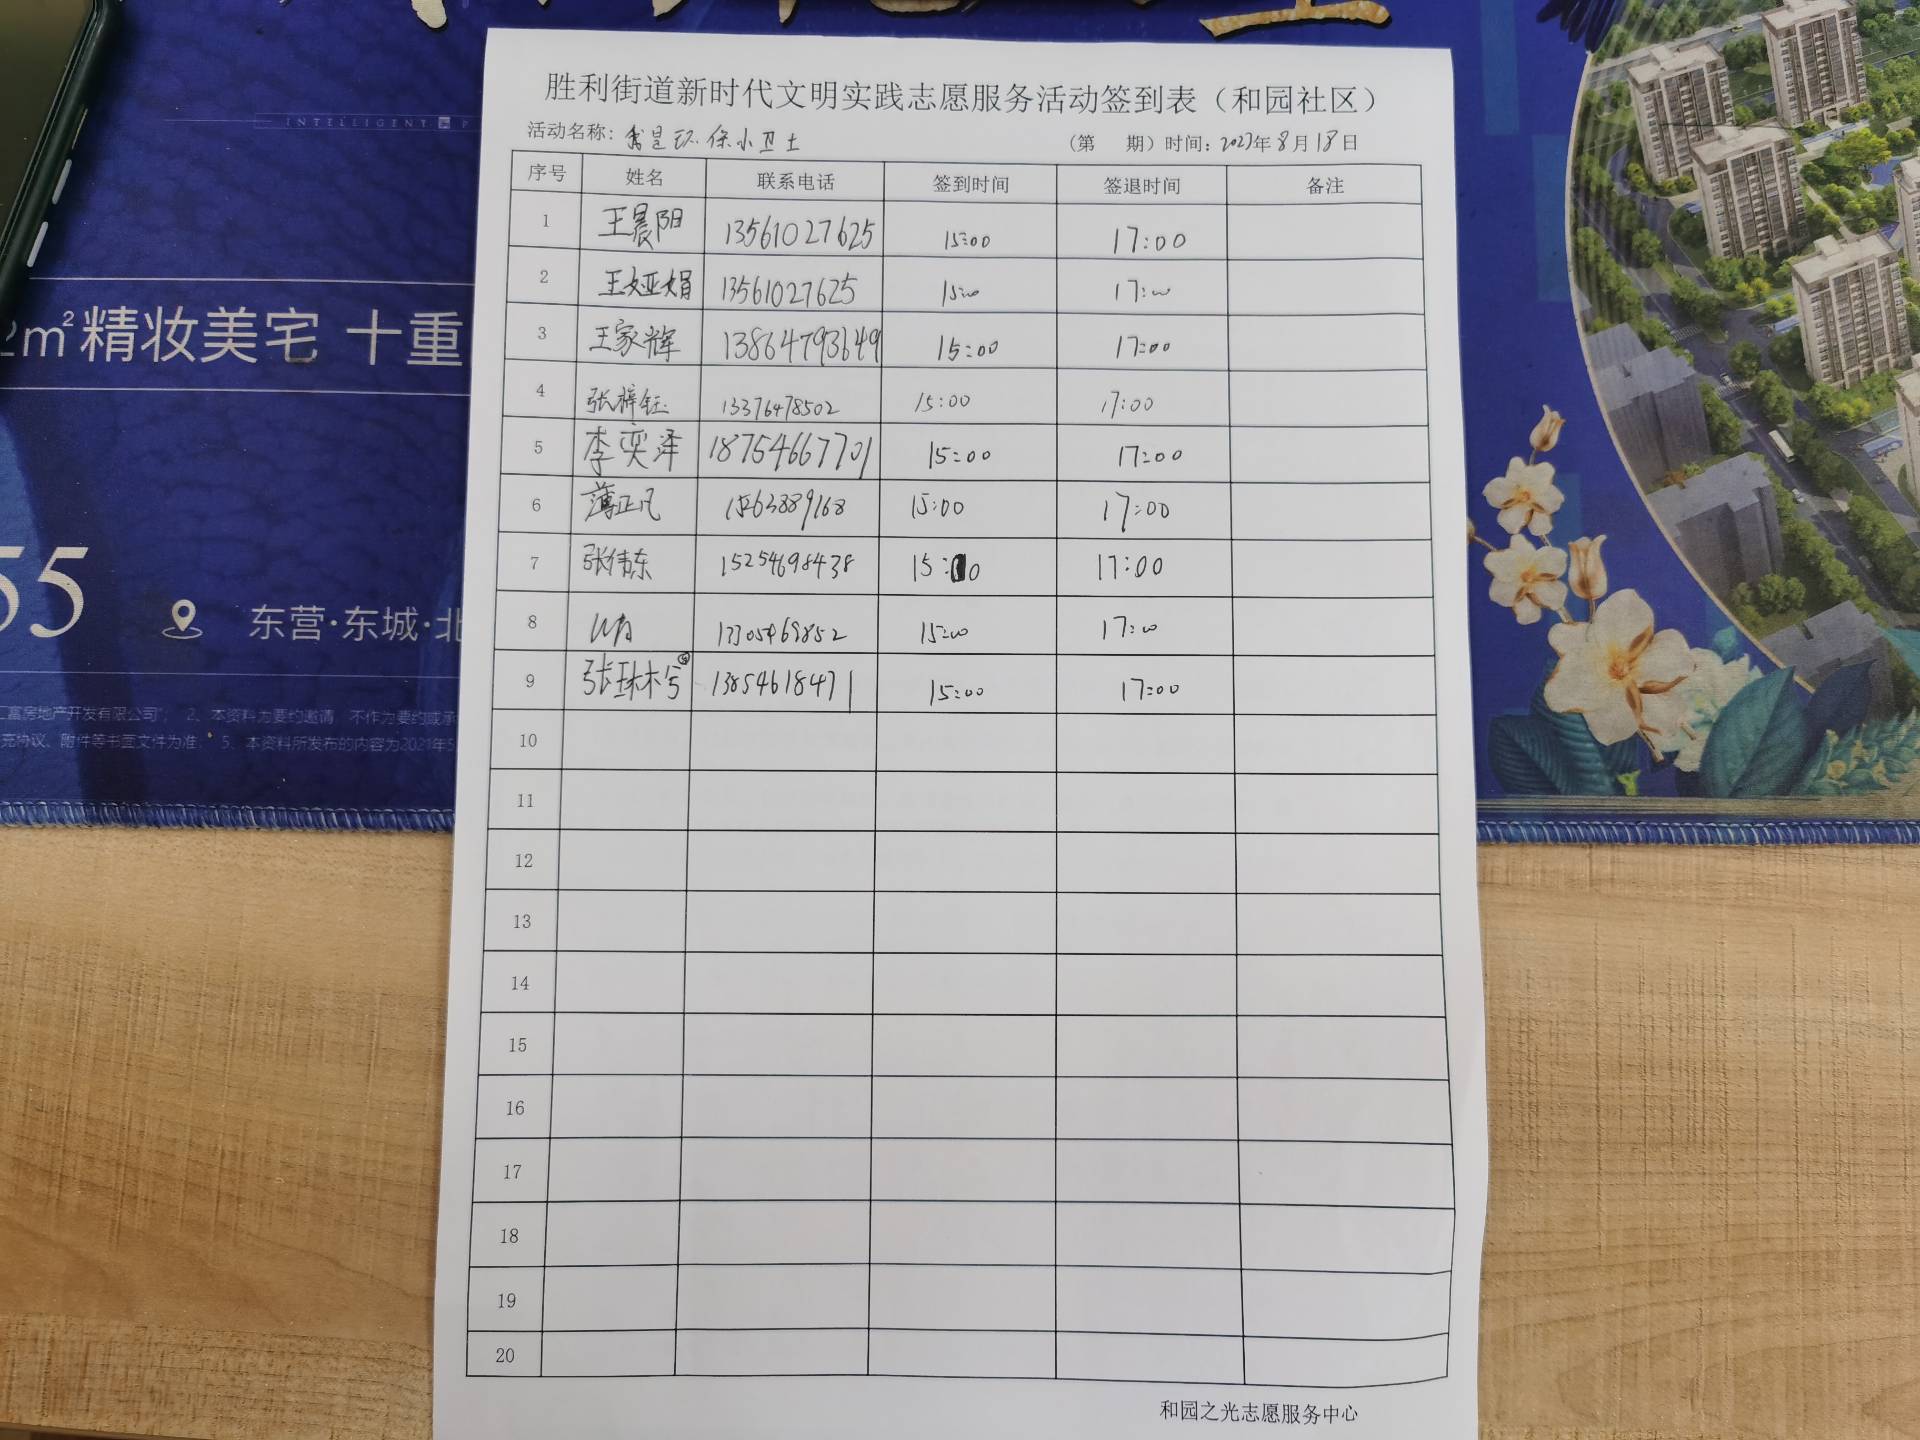 INTELLIGENT
m²精妆美宅 十重
55
东营·东城·北
汇富房地产开发有限公司”； 2、本资料为要约邀请，不作为要约或承
充协议、附件等书面文件为准。 5、本资料所发布的内容为2021年5
胜利街道新时代文明实践志愿服务活动签到表（和园社区）
活动名称：我是环保小卫士 （第 期）时间：2023年8月18日
序号 姓名 联系电话 签到时间 签退时间 备注
1 王晨阳 13561027625 15:00 17:00
2 王娅娟 13561027625 15:00 17:00
3 王家辉 13864793649 15:00 17:00
4 张梓钰 13376478502 15:00 17:00
5 李奕泽 18754667701 15:00 17:00
6 薄正凡 15263889168 15:00 17:00
7 张倩东 15254698438 15:00 17:00
8 13305469852 15:00 17:00
9 张琳兮 13854618471 15:00 17:00
10
11
12
13
14
15
16
17
18
19
20
和园之光志愿服务中心